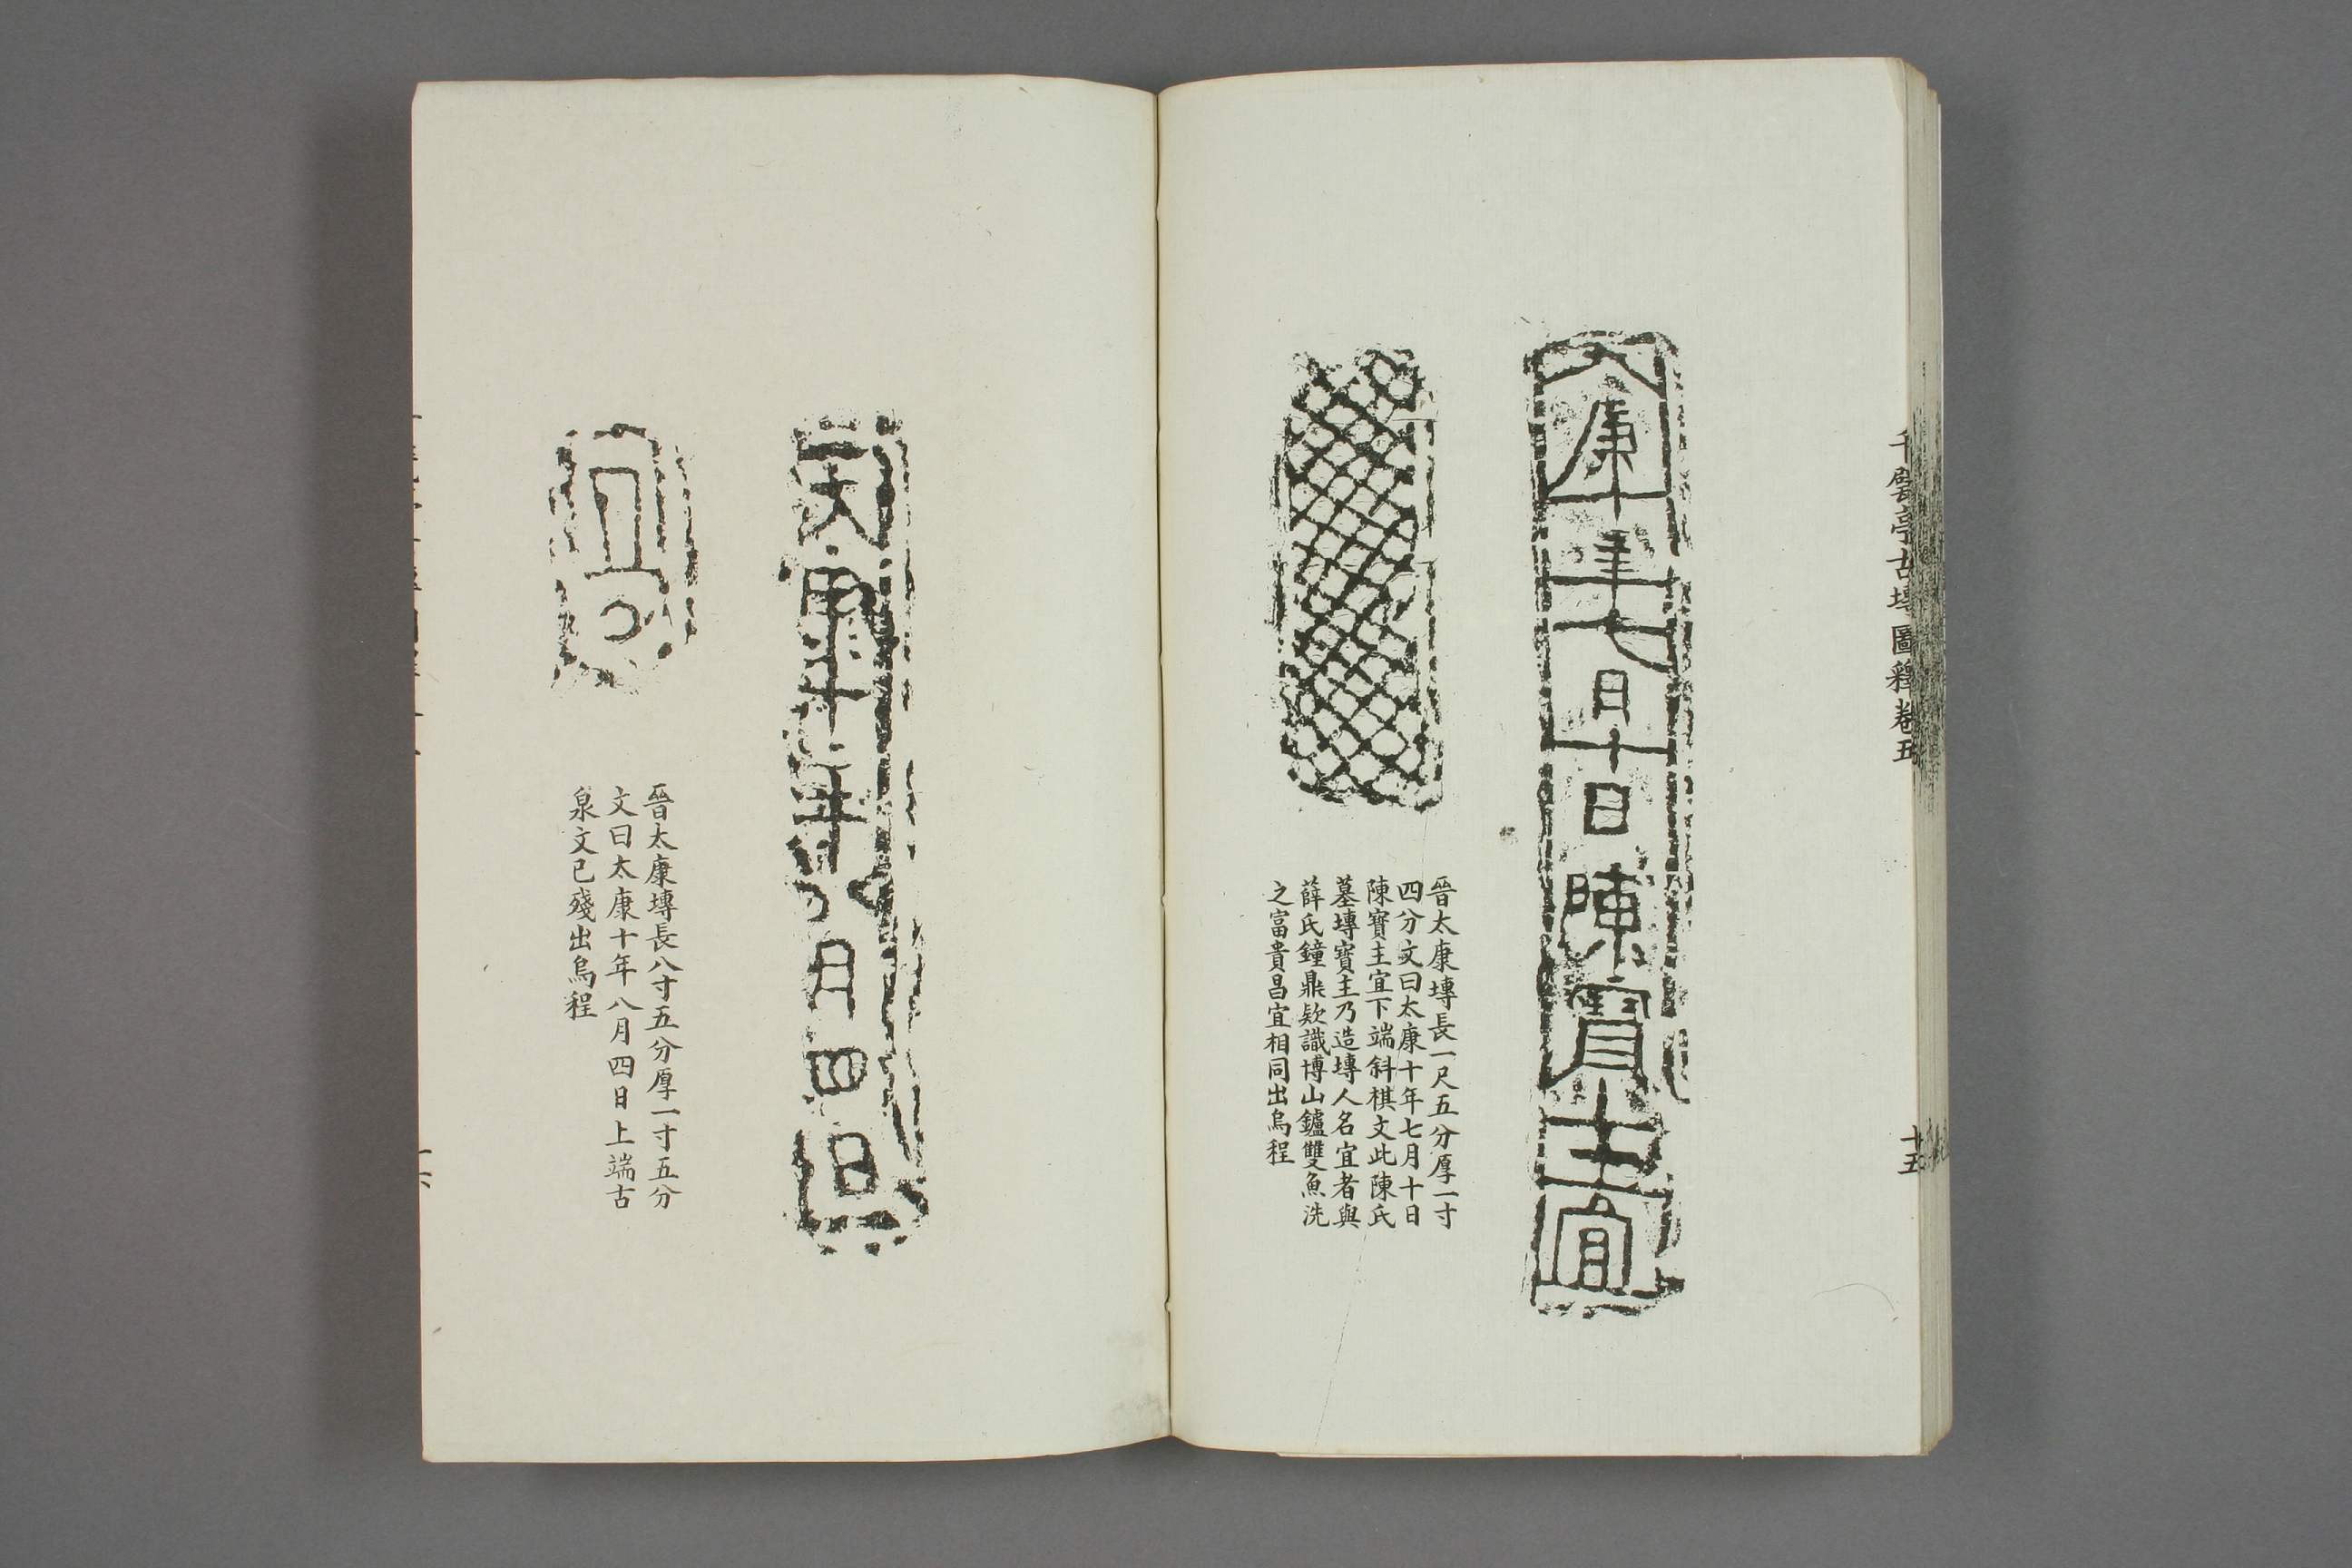 千甓亭古塼圖釋卷五
十五
太康十年七月十日陳寶主宜
晉太康塼長一尺五分厚一寸
四分文曰太康十年七月十日
陳寶主宜下端斜棋文此陳氏
墓塼寶主乃造塼人名宜者與
薛氏鐘鼎款識博山鑪雙魚洗
之富貴昌宜相同出烏程
太康十年八月四日
晉太康塼長八寸五分厚一寸五分
文曰太康十年八月四日上端古
泉文已殘出烏程